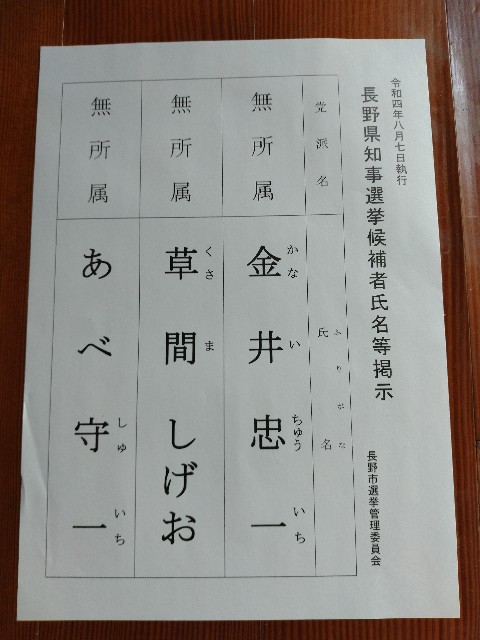 令和四年八月七日執行
長野県知事選挙候補者氏名等掲示
長野市選挙管理委員会
党派名
ふりがな
氏名
無所属
かない ちゅういち
金井忠一
無所属
くさま
草間しげお
無所属
しゅいち
あべ守一